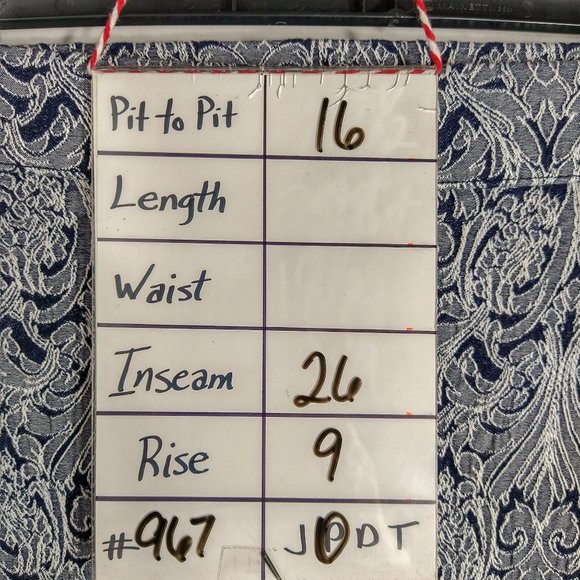 MAINETTI
Pit to Pit 16
Length
Waist
Inseam 26
Rise 9
#967 J P D T